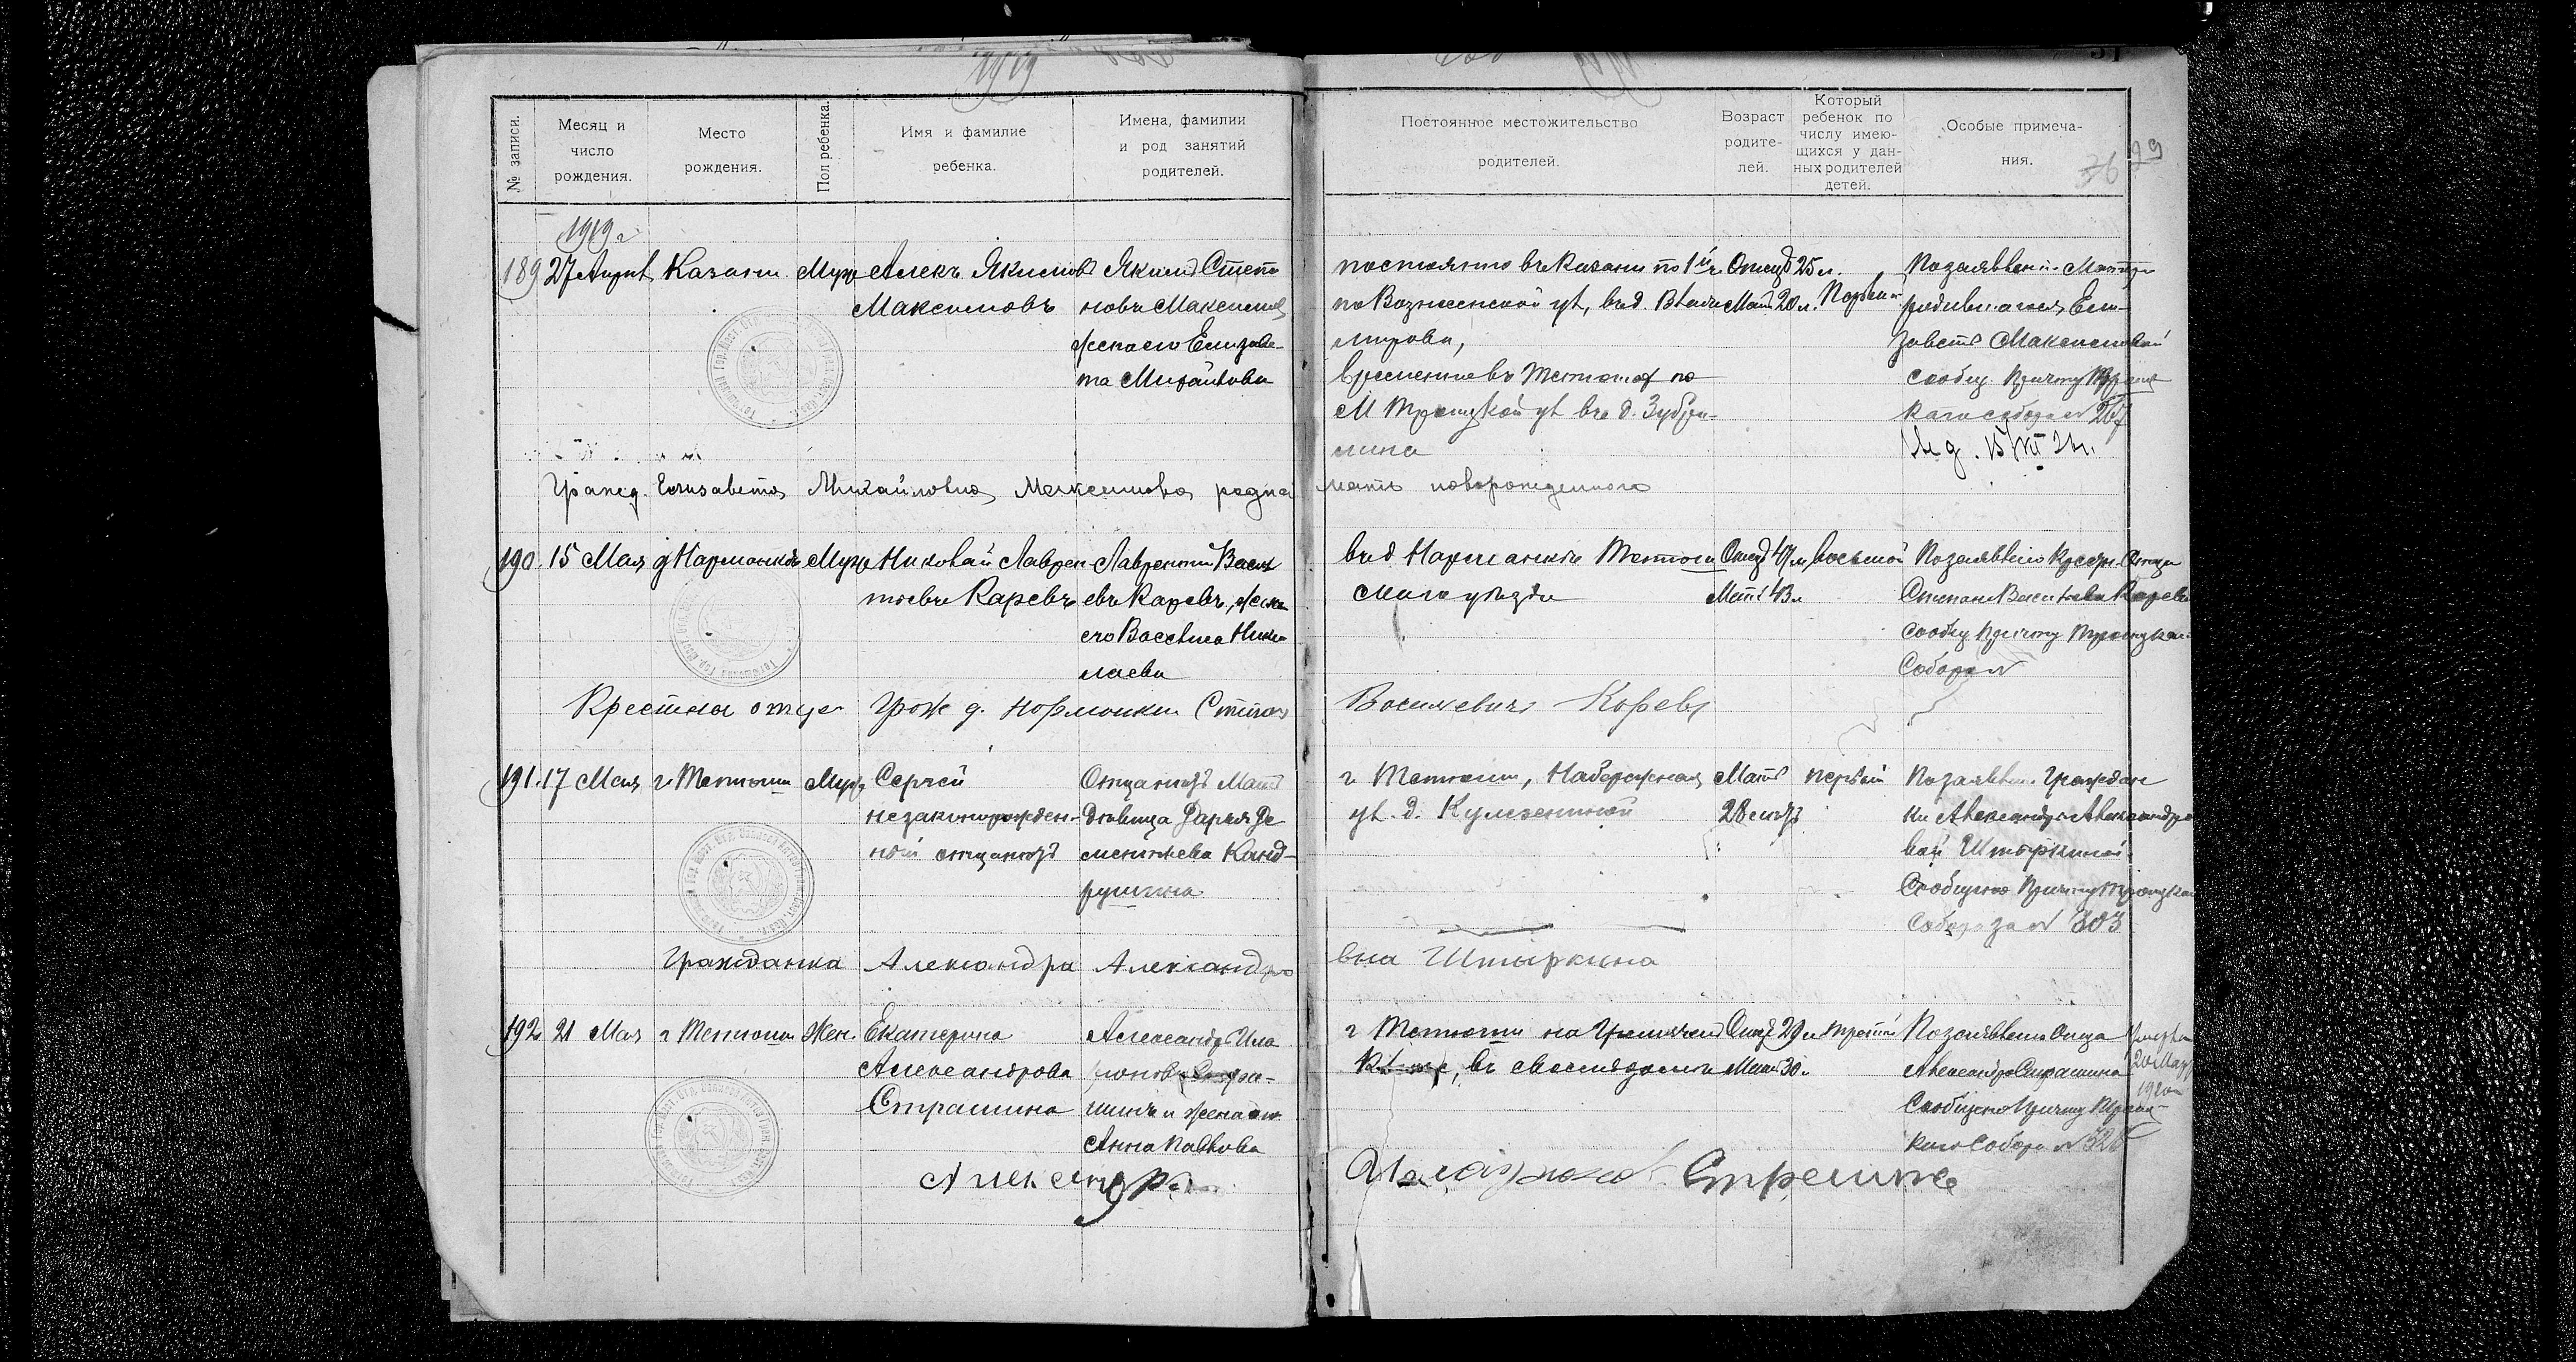 1919
№ записи.
Месяц и число рождения.
Место рождения.
Пол ребенка.
Имя и фамилие ребенка.
Имена, фамилии и род занятий родителей.
Постоянное местожительство родителей.
Возраст родителей.
Который ребенок по числу имеющихся у данных родителей детей.
Особые примечания.
36
29
1919 г
189
27 Апрел
Казани
Муж
Алекъ Якимовъ
Максимовъ
Якимъ Степа
новъ Максимов
жена его Елизаве-
та Михайлова
постоянно въ Казани по 1й
по Вознесенской ул, въ д.
мирова,
временно въ Тетюшах по
М Троицкой ул въ д. Зубри-
нина
Отцу 25 л.
Мат 20 л.
Первый
По заявлению Матери
родившагося Ели-
завет Максимовой
сообщ. Причту
собора № 267
Гражд. Елизавета Михайловна Максимова родна мать новорожденного
190.
15 Мая
д Нармонка
Муж
Николай Лаврен
тьевъ Каревъ
Лаврентий Василь
евъ Каревъ, жена
его Васса Нико
лаева
въ д Нармонкѣ Тетюш
скаго уѣзда
Отцу 47 л
Мат 43 л
восьмой
По заявлению
Степана Васильева Карева
сообщ Причту Троицкаго
Собора №
Крестный отец Граж д. Нормонки Степан Васильевичъ Каревъ
191.
17 Мая
г. Тетюши
Муж
Сергей
незаконорожден-
ный
Мат
дѣвица Дарья Де
ментьева Канд-
рушина
г Тетюши, Набережная
ул. д.
Мат
28 лѣтъ
первый
По заявлен. Граждан
ки Александры Александро
вой Штыркиной
Сообщено Причту Троицкаго
Собора за № 303
Гражданка Александра Александровна Штыркина
192
21 Мая
г Тетюши
Жен.
Екатерина
Александрова
Страшина
Александр Ила
рионов Стра-
шинъ и жена его
Анна Павлова
г Тетюши на
въ своемъ домѣ
Отцу 29 л
Мат 30 л
третий
По заявлению Отца
Александра Страшина
Сообщено Причту Троиц-
каго Собора №
Умерла
20 Мар
1920
Александр Иларионов Страшин